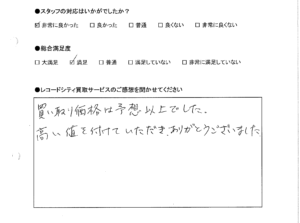 ●スタッフの対応はいかがでしたか？
☑非常に良かった　□良かった　□普通　□良くない　□非常に良くない
●総合満足度
□大満足　☑満足　□普通　□満足していない　□非常に満足していない
●レコードシティ買取サービスのご感想を聞かせてください
買い取り価格は予想以上でした。
高い値を付けていただき、ありがとうございました